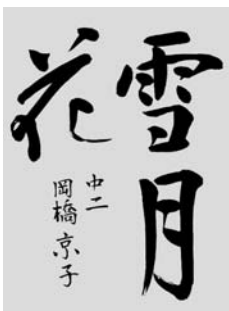 雪月
花
中二
岡橋京子